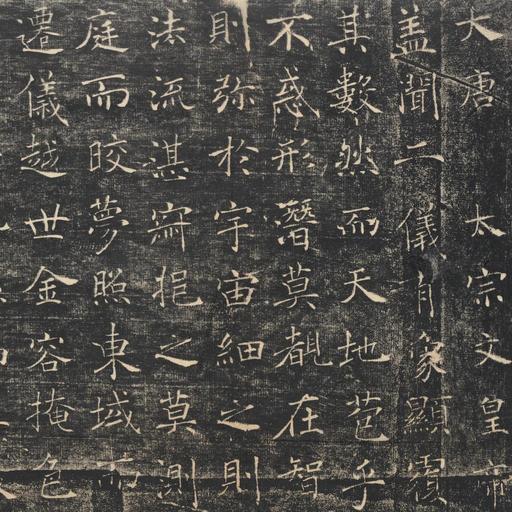 大唐 太宗文皇帝
盖聞二儀有象顯覆
其數然而天地苞乎
不惑形潛莫覩在智
則弥於宇宙細之則
法流湛寂挹之莫測
庭而皎夢照東域而
遷儀越世金容掩色